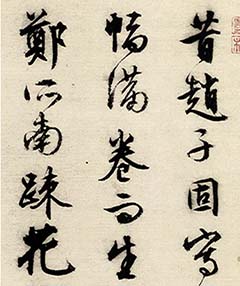 昔趙子固寫
幅滿卷而生
鄭所南踈花